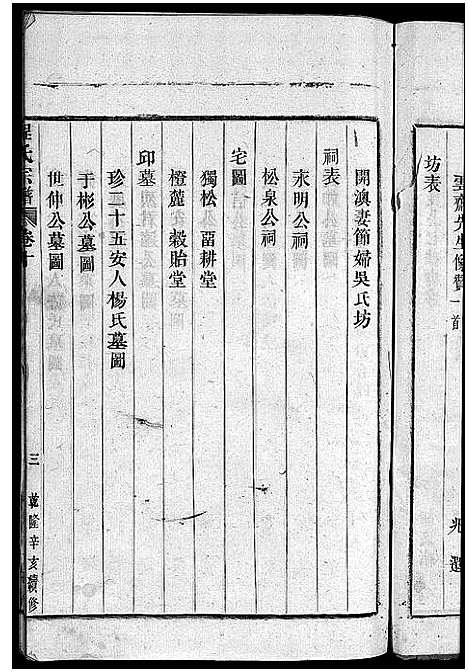 雲齋先生像贊一首
坊表
兆選
開澳妻節婦吳氏坊
祠表
永明公祠
松泉公祠
宅圖
獨松公留耕堂
橙麓公穀貽堂
邱墓
珍二十五安人楊氏墓圖
于彬公墓圖
世仲公墓圖
程氏宗譜 卷十
三
乾隆辛亥續修